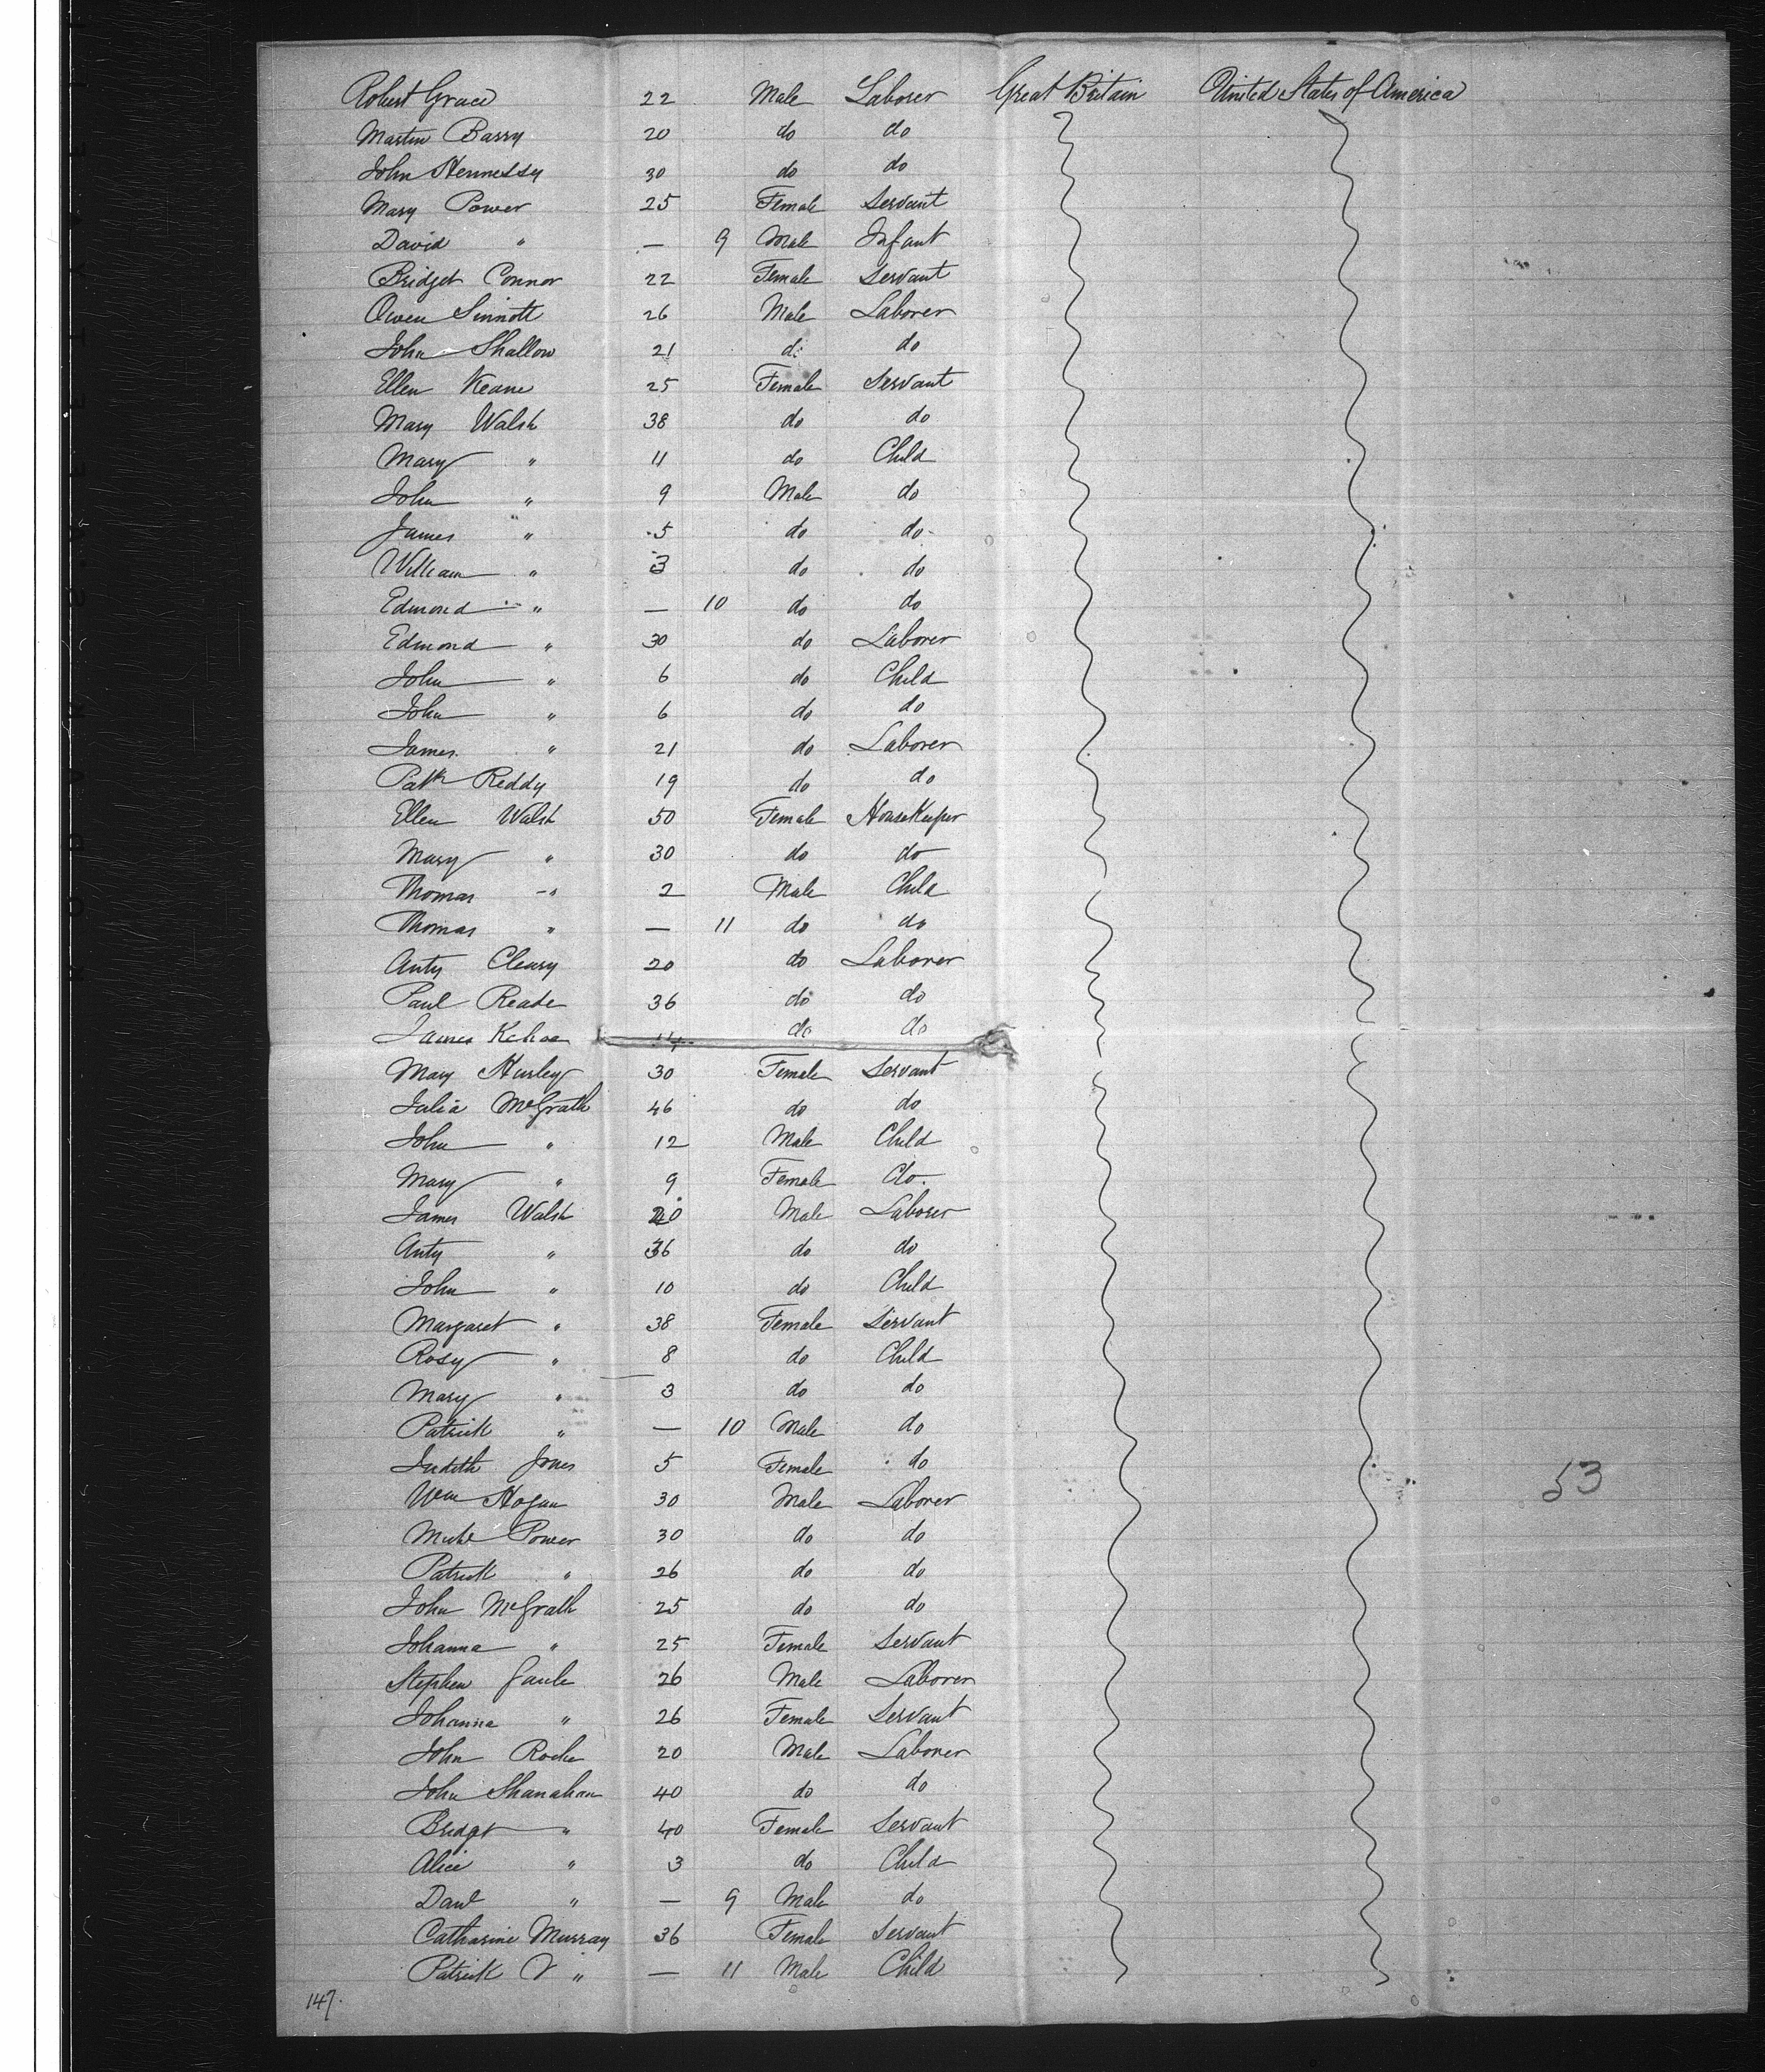 Robert Grace 22 Male Laborer Great Britain United States of America
Martin Barry 20 do do
John Hennessy 30 do do
Mary Power 25 Female Servant
David " — 9 Male Infant
Bridget Connor 22 Female Servant
Owen Sinnott 26 Male Laborer
John Shallow 21 do do
Ellen Keane 25 Female Servant
Mary Walsh 38 do do
Mary " 11 do Child
John " 9 Male do
James " 5 do do
William " 3 do do
Edmond " — 10 do do
Edmond " 30 do Laborer
John " 6 do Child
John " 6 do do
James " 21 do Laborer
Patk Reddy 19 do do
Ellen Walsh 50 Female HouseKeeper
Mary " 30 do do
Thomas " 2 Male Child
Thomas " — 11 do do
Anty Cleary 20 do Laborer
Paul Reade 36 do do
James Kehoe do do
Mary Hurley 30 Female Servant
Julia McGrath 46 do do
John " 12 Male Child
Mary " 9 Female do.
James Walsh Male Laborer
Anty " 36 do do
John " 10 do Child
Margaret " 38 Female Servant
Rosy " 8 do Child
Mary " 3 do do
Patrick " — 10 Male do
Judith Jones 5 Female do
Wm Hogan 30 Male Laborer
53
Power 30 do do
Patrick " 26 do do
John McGrath 25 do do
Johanna " 25 Female Servant
Stephen Gaule 26 Male Laborer
Johanna " 26 Female Servant
John Roche 20 Male Laborer
John Shanahan 40 do do
Bridget " 40 Female Servant
Alice " 3 do Child
" — 9 Male do
Catharine Murray 36 Female Servant
Patrick " — 11 Male Child
147.